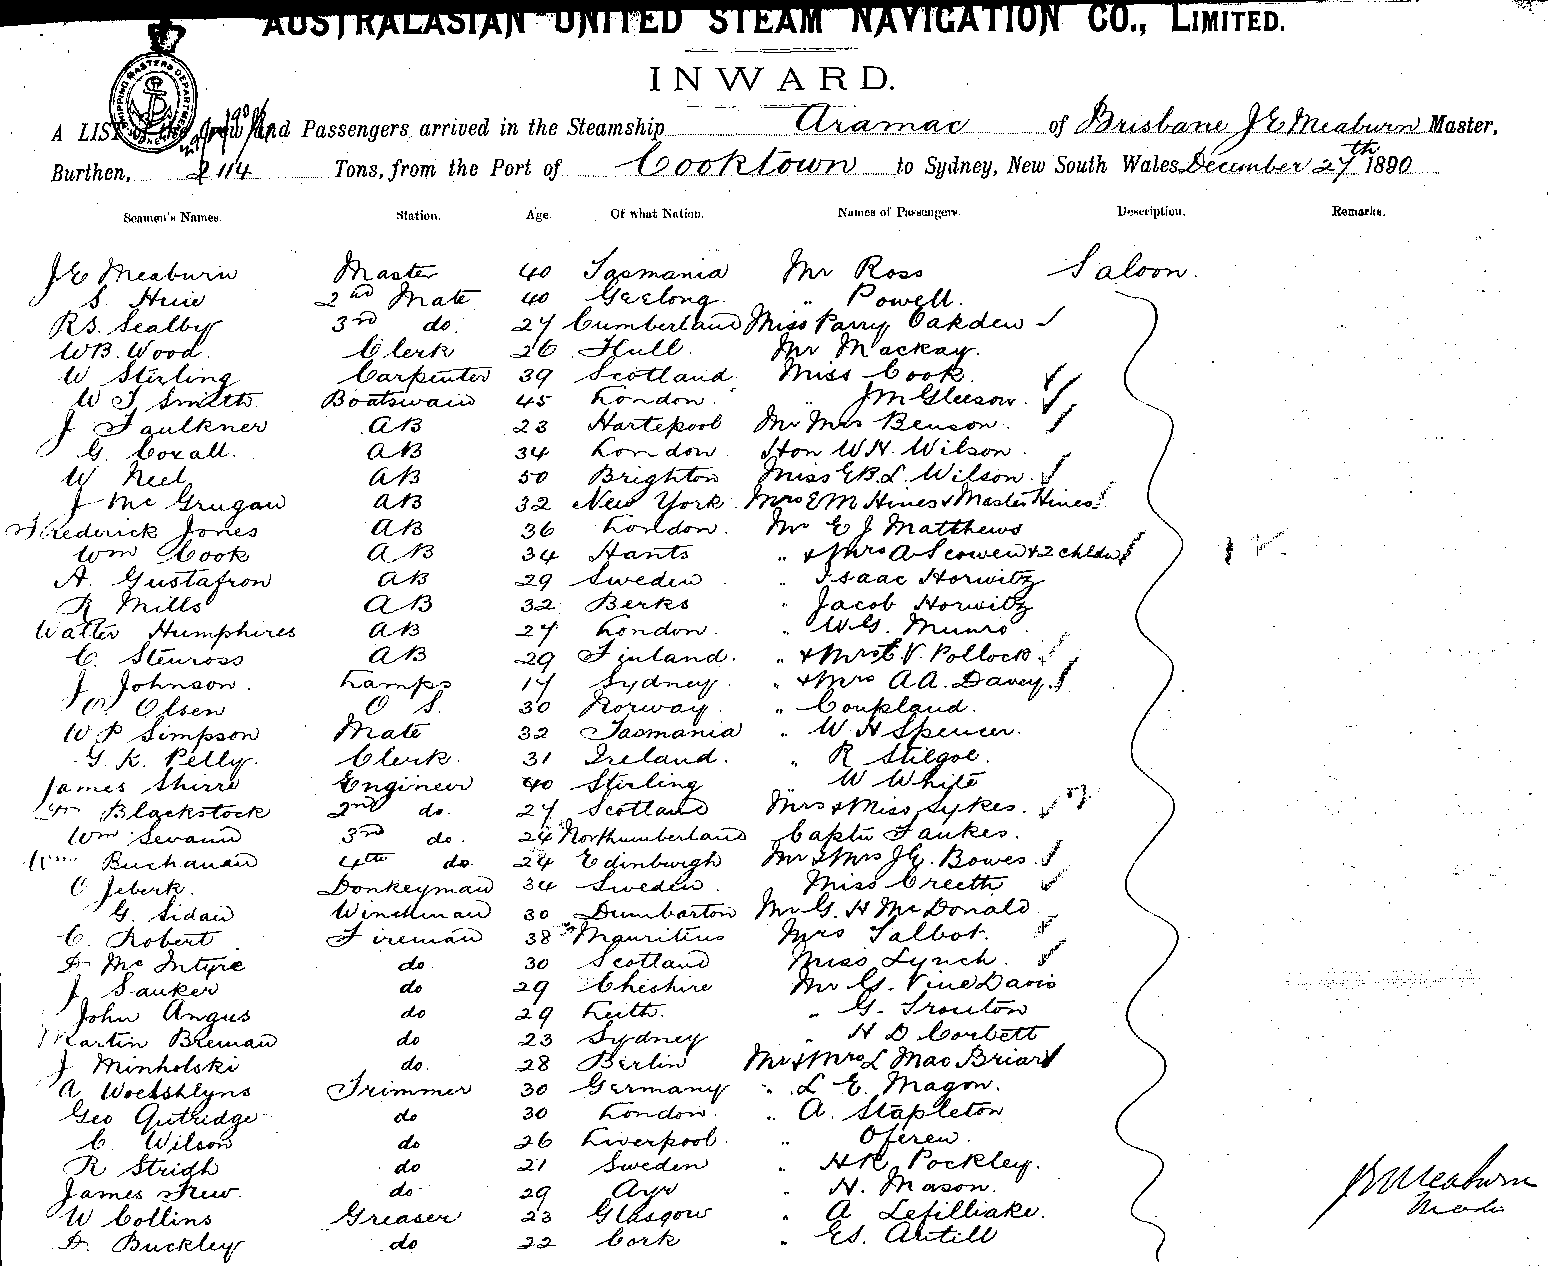 AUSTRALASIAN UNITED STEAM NAVIGATION CO., LIMITED.
INWARD.
A LIST of the Crew and Passengers arrived in the Steamship Aramac of Brisbane J E Meaburn Master,
Burthen, 2114 Tons, from the Port of Cooktown to Sydney, New South Wales December 27th 1890
Seamen's Names. Station. Age. Of what Nation. Names of Passengers. Description. Remarks.
J E Meaburn Master 40 Tasmania Mr Ross Saloon.
S. Huie 2nd Mate 40 Geelong. " Powell.
RS. Sealby 3rd do. 27 Cumberland Miss Parry Oakden
WB. Wood. Clerk 26 Hull. Mr Mackay.
W Stirling Carpenter 39 Scotland Miss Cook.
W T Smith Boatswain 45 London. " JM Gleeson.
J Faulkner AB 23 Hartepool Mr Mrs Benson.
G. Coxall. AB 34 London. Hon W H. Wilson.
W Neel AB 50 Brighton Miss E B. L. Wilson.
J McGrugan AB 32 New York Mrs E M Hines & Master Hines
Frederick Jones AB 36 London. Mr E J Matthews
Wm Cook AB 34 Hants " & Mrs A Scowen & 2 childn
A. Gustafron AB 29 Sweden " Isaac Horwitz
R Mills AB 32 Berks " Jacob Horwitz
Walter Humphires AB 27 London. " W G. Munro
C. Stenross AB 29 Finland. " & Mrs E V. Pollock
J Johnson. Lamps 17 Sydney. " & Mrs A A. Davey.
O. Olsen O S. 30 Norway. " Coupland.
W P Simpson Mate 32 Tasmania " W H Spencer.
G. K. Pelly. Clerk. 31 Ireland. " R Stilgoe.
James Shirre Engineer 40 Stirling " W White
Blackstock 2nd do. 27 Scotland Mrs & Miss Sykes.
Wm Sevaun 3rd do. 24 Northumberland Captn Faukes.
Wm Buchanan 4th do. 24 Edinburgh Mr & Mrs J E. Bowes.
C Jeberk. Donkeyman 34 Sweden. Miss Creeth
G. Sidan Winchman 30 Dumbarton Mr G. H McDonald
C. Robert Fireman 38 Mauritius Mrs Talbot.
D McIntyre do 30 Scotland Miss Lynch.
J Sauker do 29 Cheshire Mr G. Vine Davis
John Angus do 29 Leith. " G. Trouton
Martin Brenan do 23 Sydney " H D Corbett
J Minholski do. 28 Berlin Mr & Mrs L MacBriar
A Woetshlyns Trimmer 30 Germany " L E. Magon.
Geo Gutridge do 30 London. " A. Stapleton
C. Wilson do 26 Liverpool. " Oferen.
R Stridh do 21 Sweden " HR Pockley.
James Frew. do 29 Ayr " H. Mason.
W Collins Greaser 23 Glasgow " A Lefilliake.
D. Buckley do 22 Cork " ES. Antill
J E Meaburn